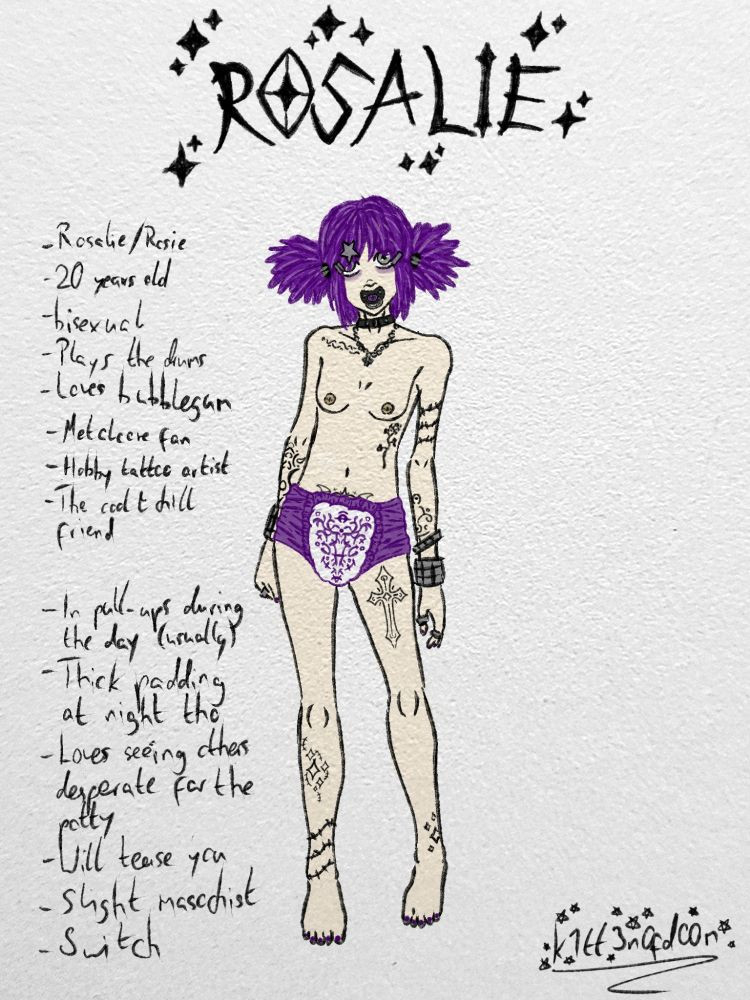 ROSALIE
- Rosalie/Rosie
- 20 years old
- bisexual
- Plays the drums
- Loves bubblegum
- Metalcore fan
- Hobby tattoo artist
- The cool & chill
friend
- In pull-ups during
the day (usually)
- Thick padding
at night tho
- Loves seeing others
desperate for the
potty
- Will tease you
- Slight masochist
- Switch
k1tt3nofd00m